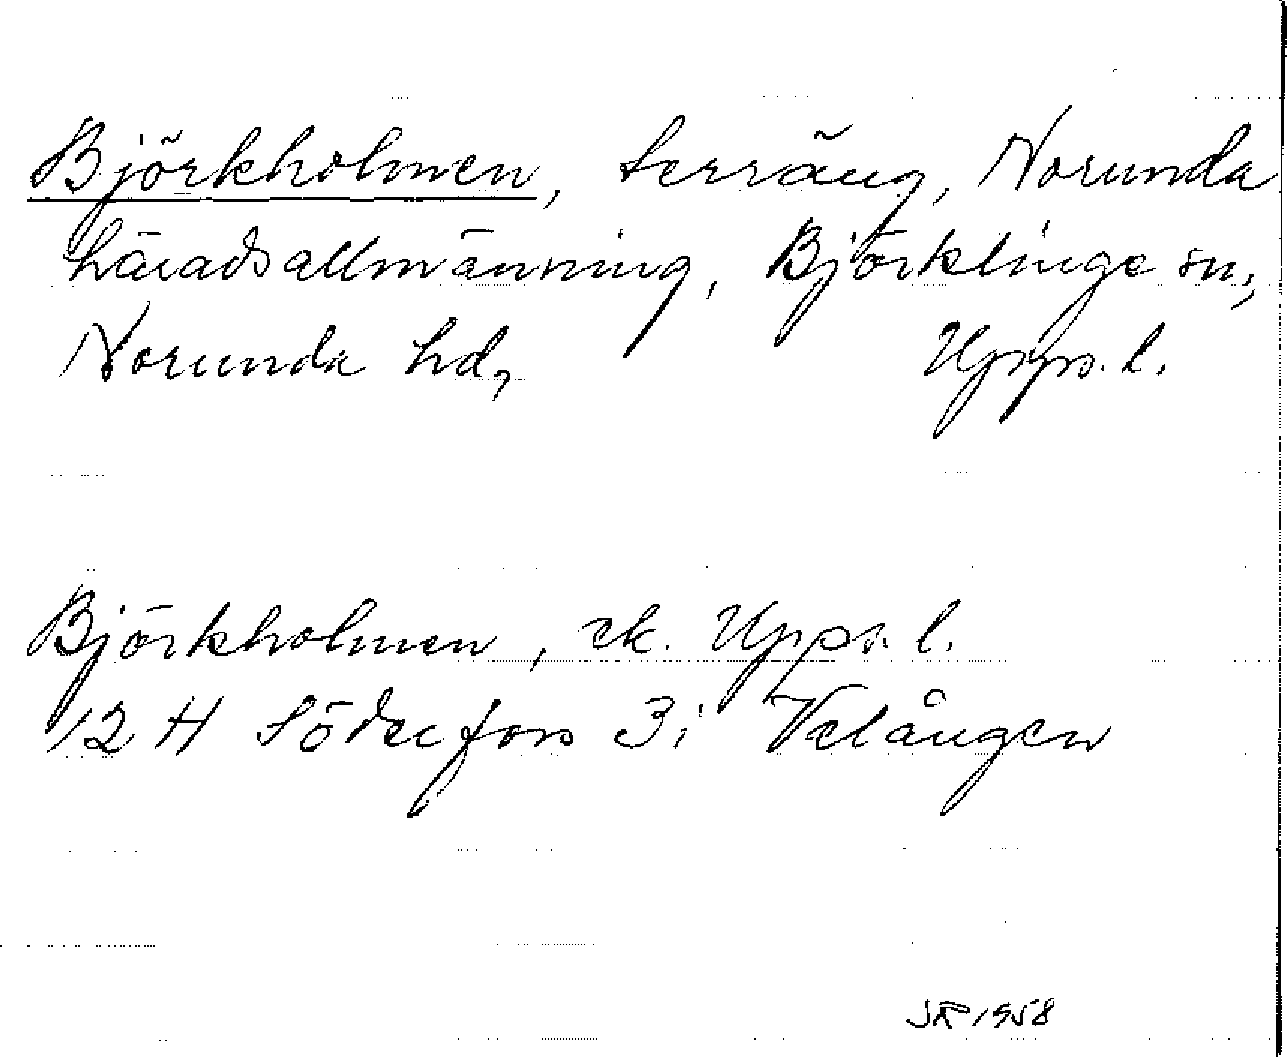 Björkholmen, terräng, Norunda
häradsallmänning, Björklinge sn,
Norunda hd, Upps. l.
Björkholmen, ek. Upps. l.
12 H Söderfors 3i Vetången
1958